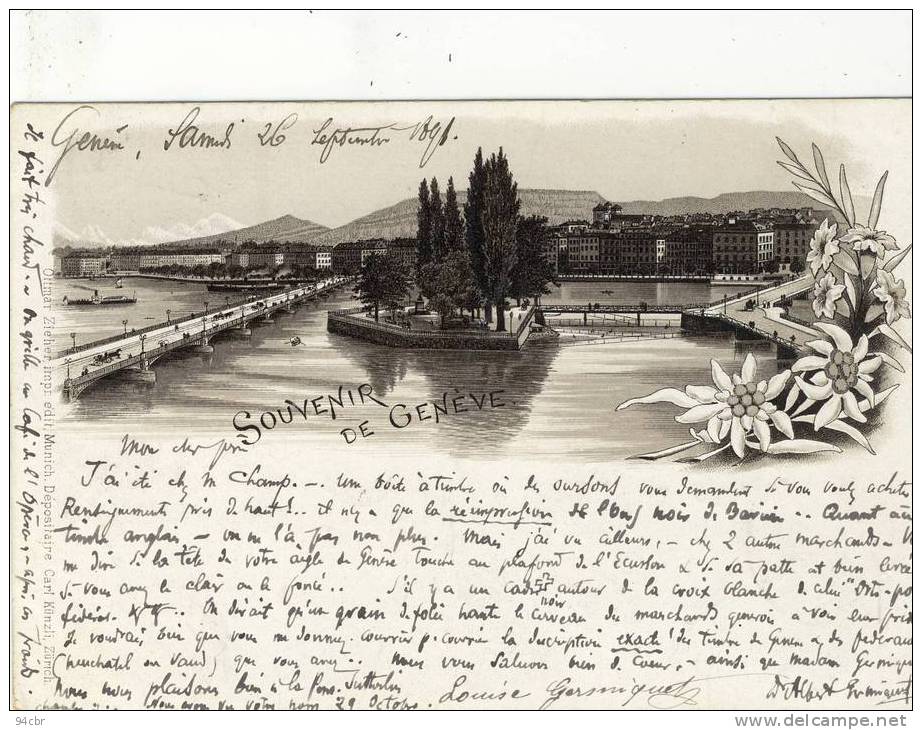 Genève, Samedi 26 Septembre 1891.
Il fait très chaud - on grille au Café de l'Opéra, - après les
Ottmar Zieher, impr. édit., Munich. Dépositaire Carl Künzli, Zürich.
SOUVENIR
DE GENÈVE.
Mon cher
J'ai été chez M Champ. - une boîte à timbre où des oursons vous demandent si vous voulez
Renseignements pris de haut!.. il n'y a que la réimpression de l'ours noir de .. Quant au
timbre anglais - on ne l'a pas non plus. Mais j'ai vu ailleurs, - chez 2 autres marchands -
me dire si la tête de votre aigle de Genève touche au plafond de l'Ecusson & si sa patte est bien
si vous avez le clair ou le foncé.. S'il y a un cadre noir autour de la croix blanche de celui "Orts-
. On dirait qu'un grain de folie hante le cerveau des marchands genevois à voir leur prix
Je voudrais bien que vous me donniez courrier p. courrier la description exacte des timbres de Genève & des fédéraux
(neuchatel ou Vaud) que vous avez.. Nous vous saluons bien de coeur, - ainsi que Madame
Nous nous plaisons bien à la Pens. Sutterlin Louise Germiquet Dr Albert Germiquet
Nous avons vu votre nom 29 Octobre.
94cbr